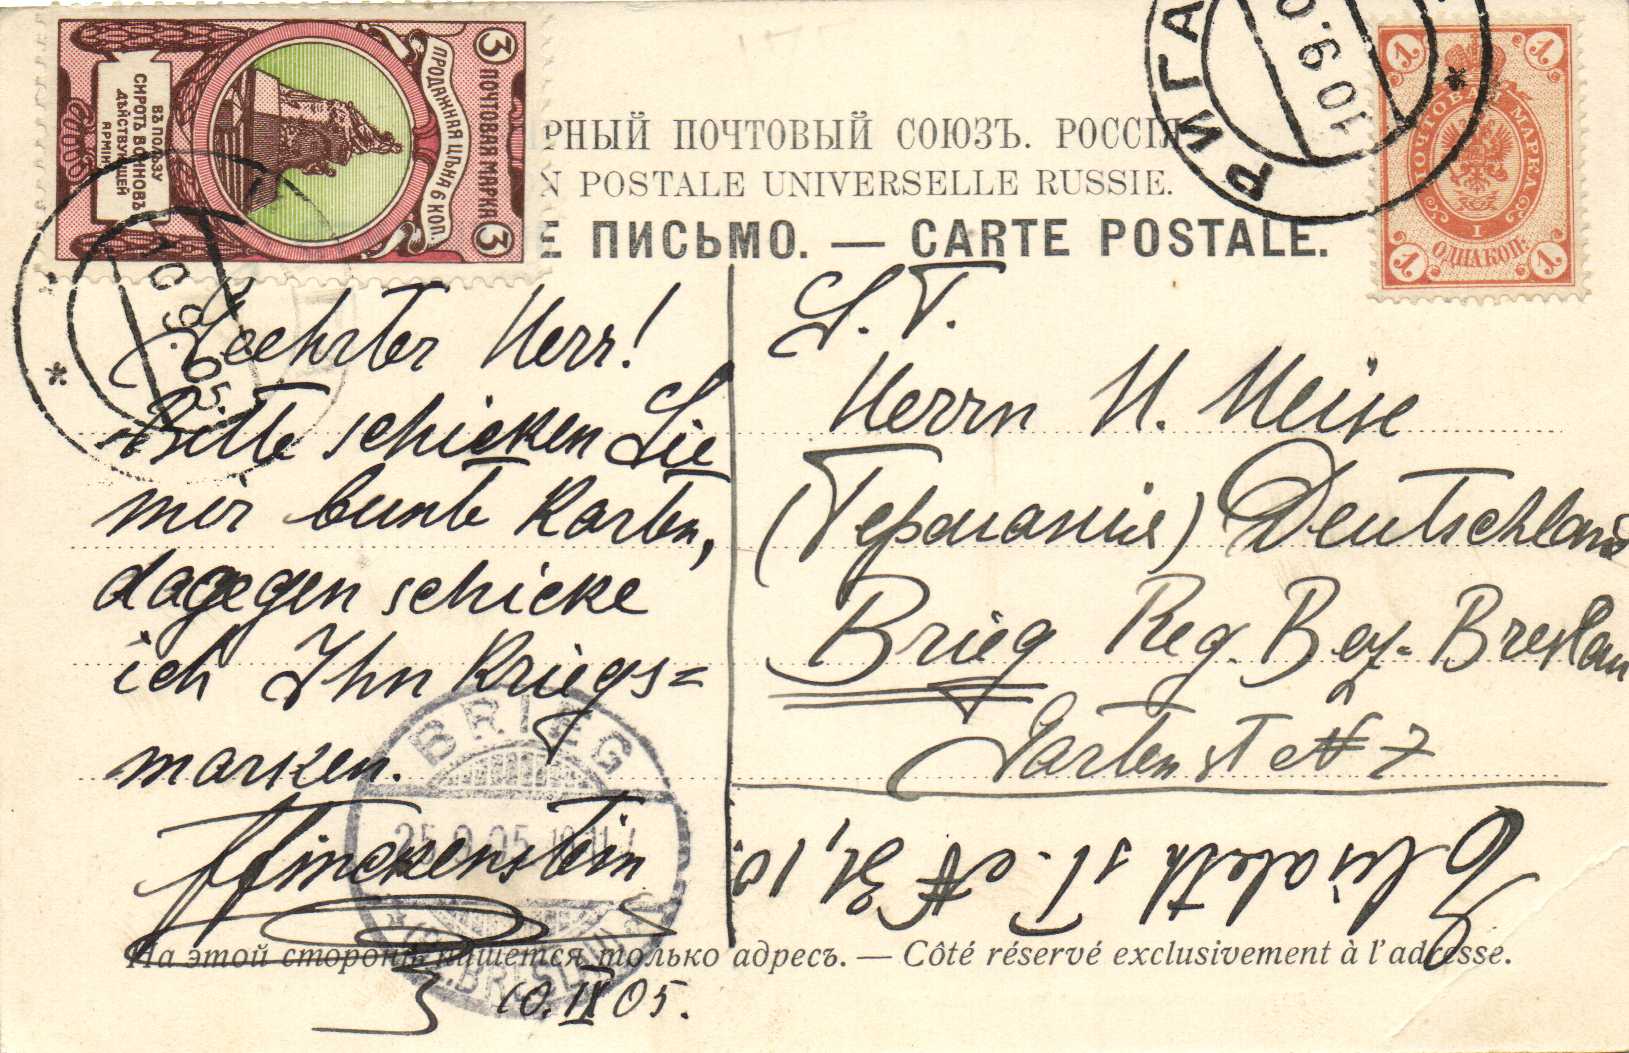 3 ПОЧТОВАЯ МАРКА 3
ПРОДАЖНАЯ ЦѢНА 6 КОП.
ВЪ ПОЛЬЗУ
СИРОТЪ ВОИНОВЪ
ДѢЙСТВУЮЩЕЙ
АРМІИ
РИГА
10 9. 0
1 1
ПОЧТОВАЯ МАРКА
1
ОДНА КОП.
1 1
РНЫЙ ПОЧТОВЫЙ СОЮЗЪ. РОССІЯ
N POSTALE UNIVERSELLE RUSSIE.
Е ПИСЬМО. — CARTE POSTALE.
10 9. 05.
Geehrter Herr!
Bitte schicken Sie
mir bunte Karten,
dagegen schicke
ich Ihn Kriegs=
marken.
Finckenstein
10. IX 05.
S. T.
Herrn H. Heise
(Германия) Deutschland
Brieg Reg. Bez. Breslau
Gartenst № 7
Elisabeth st
BRIEG
25.9.05. 10-11.V
(BZ. BRESLAU)
На этой сторонѣ пишется только адресъ. — Côté réservé exclusivement à l'adresse.